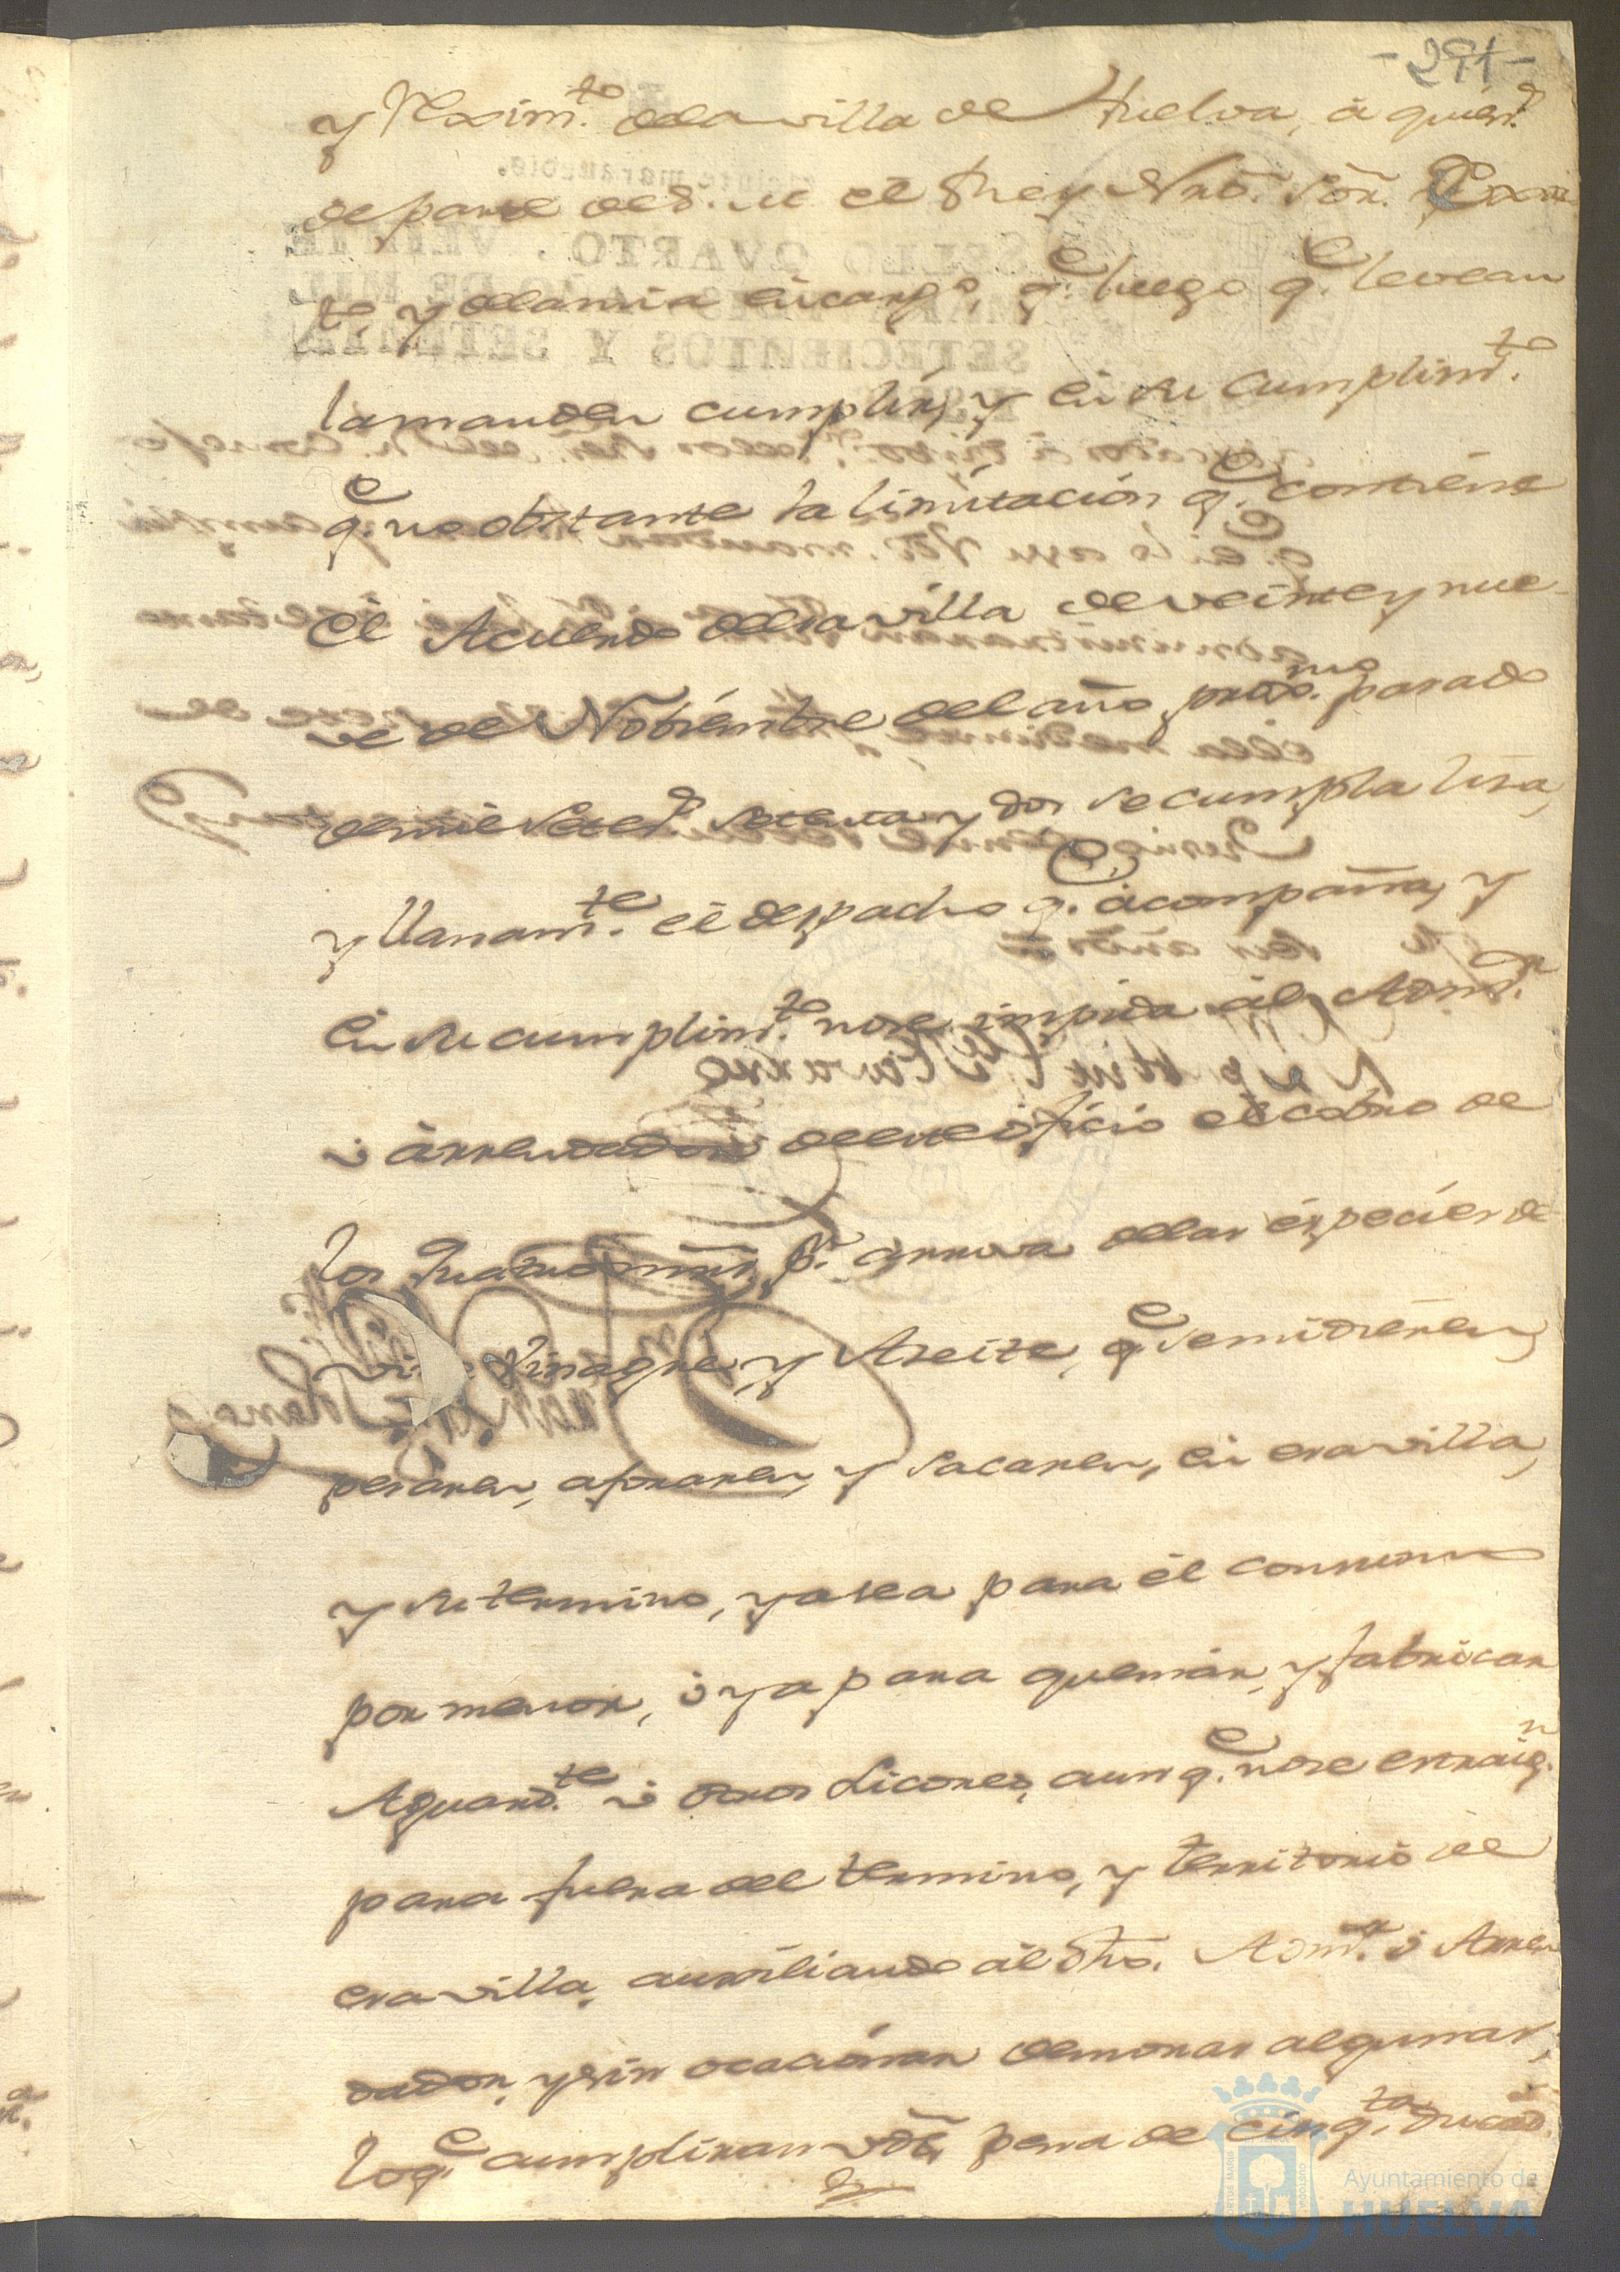 -291-
y Rexim.to dela villa de Huelva, à quien.s
de parte de S. M. el Rey Nrõ. Sõr. Exor
to, y dela mia encargo, q.e luego q.e le vean
la manden cumplir, y en su cumplim.to
q.e no obstante la limitación q.e contiene
el Acuerdo de esa villa de veinte y nue-
ve de Nobiembre del año prox.mo pasado
de mil Setec.s setenta y dos se cumpla lisa,
y llanam.te el despacho q.e acompaña, y
en su cumplim.to no se impida àl Adm.or
ò àrrendador de ese oficio el cobro de
los quatro mrs. p.r arrova delas especies de
vi Vinagre, y Aseite, q.e se midieren,
pesaren, aforaren, y sacaren, en esa villa,
y su termino, ya sea para el consumo
por menor, ò ya para quemar, y fabricar
Aguard.te ù otros Licores, aunq.e no se estraig.n
para fuera del termino, y territorio de
esa villa, auxiliando àl dho. Adm.or ò Arren
dador, y sin ocacionar demoras algunas,
loq.e cumpliran vds, pena de cinq.ta ducad.s
Ayuntamiento de
HUELVA